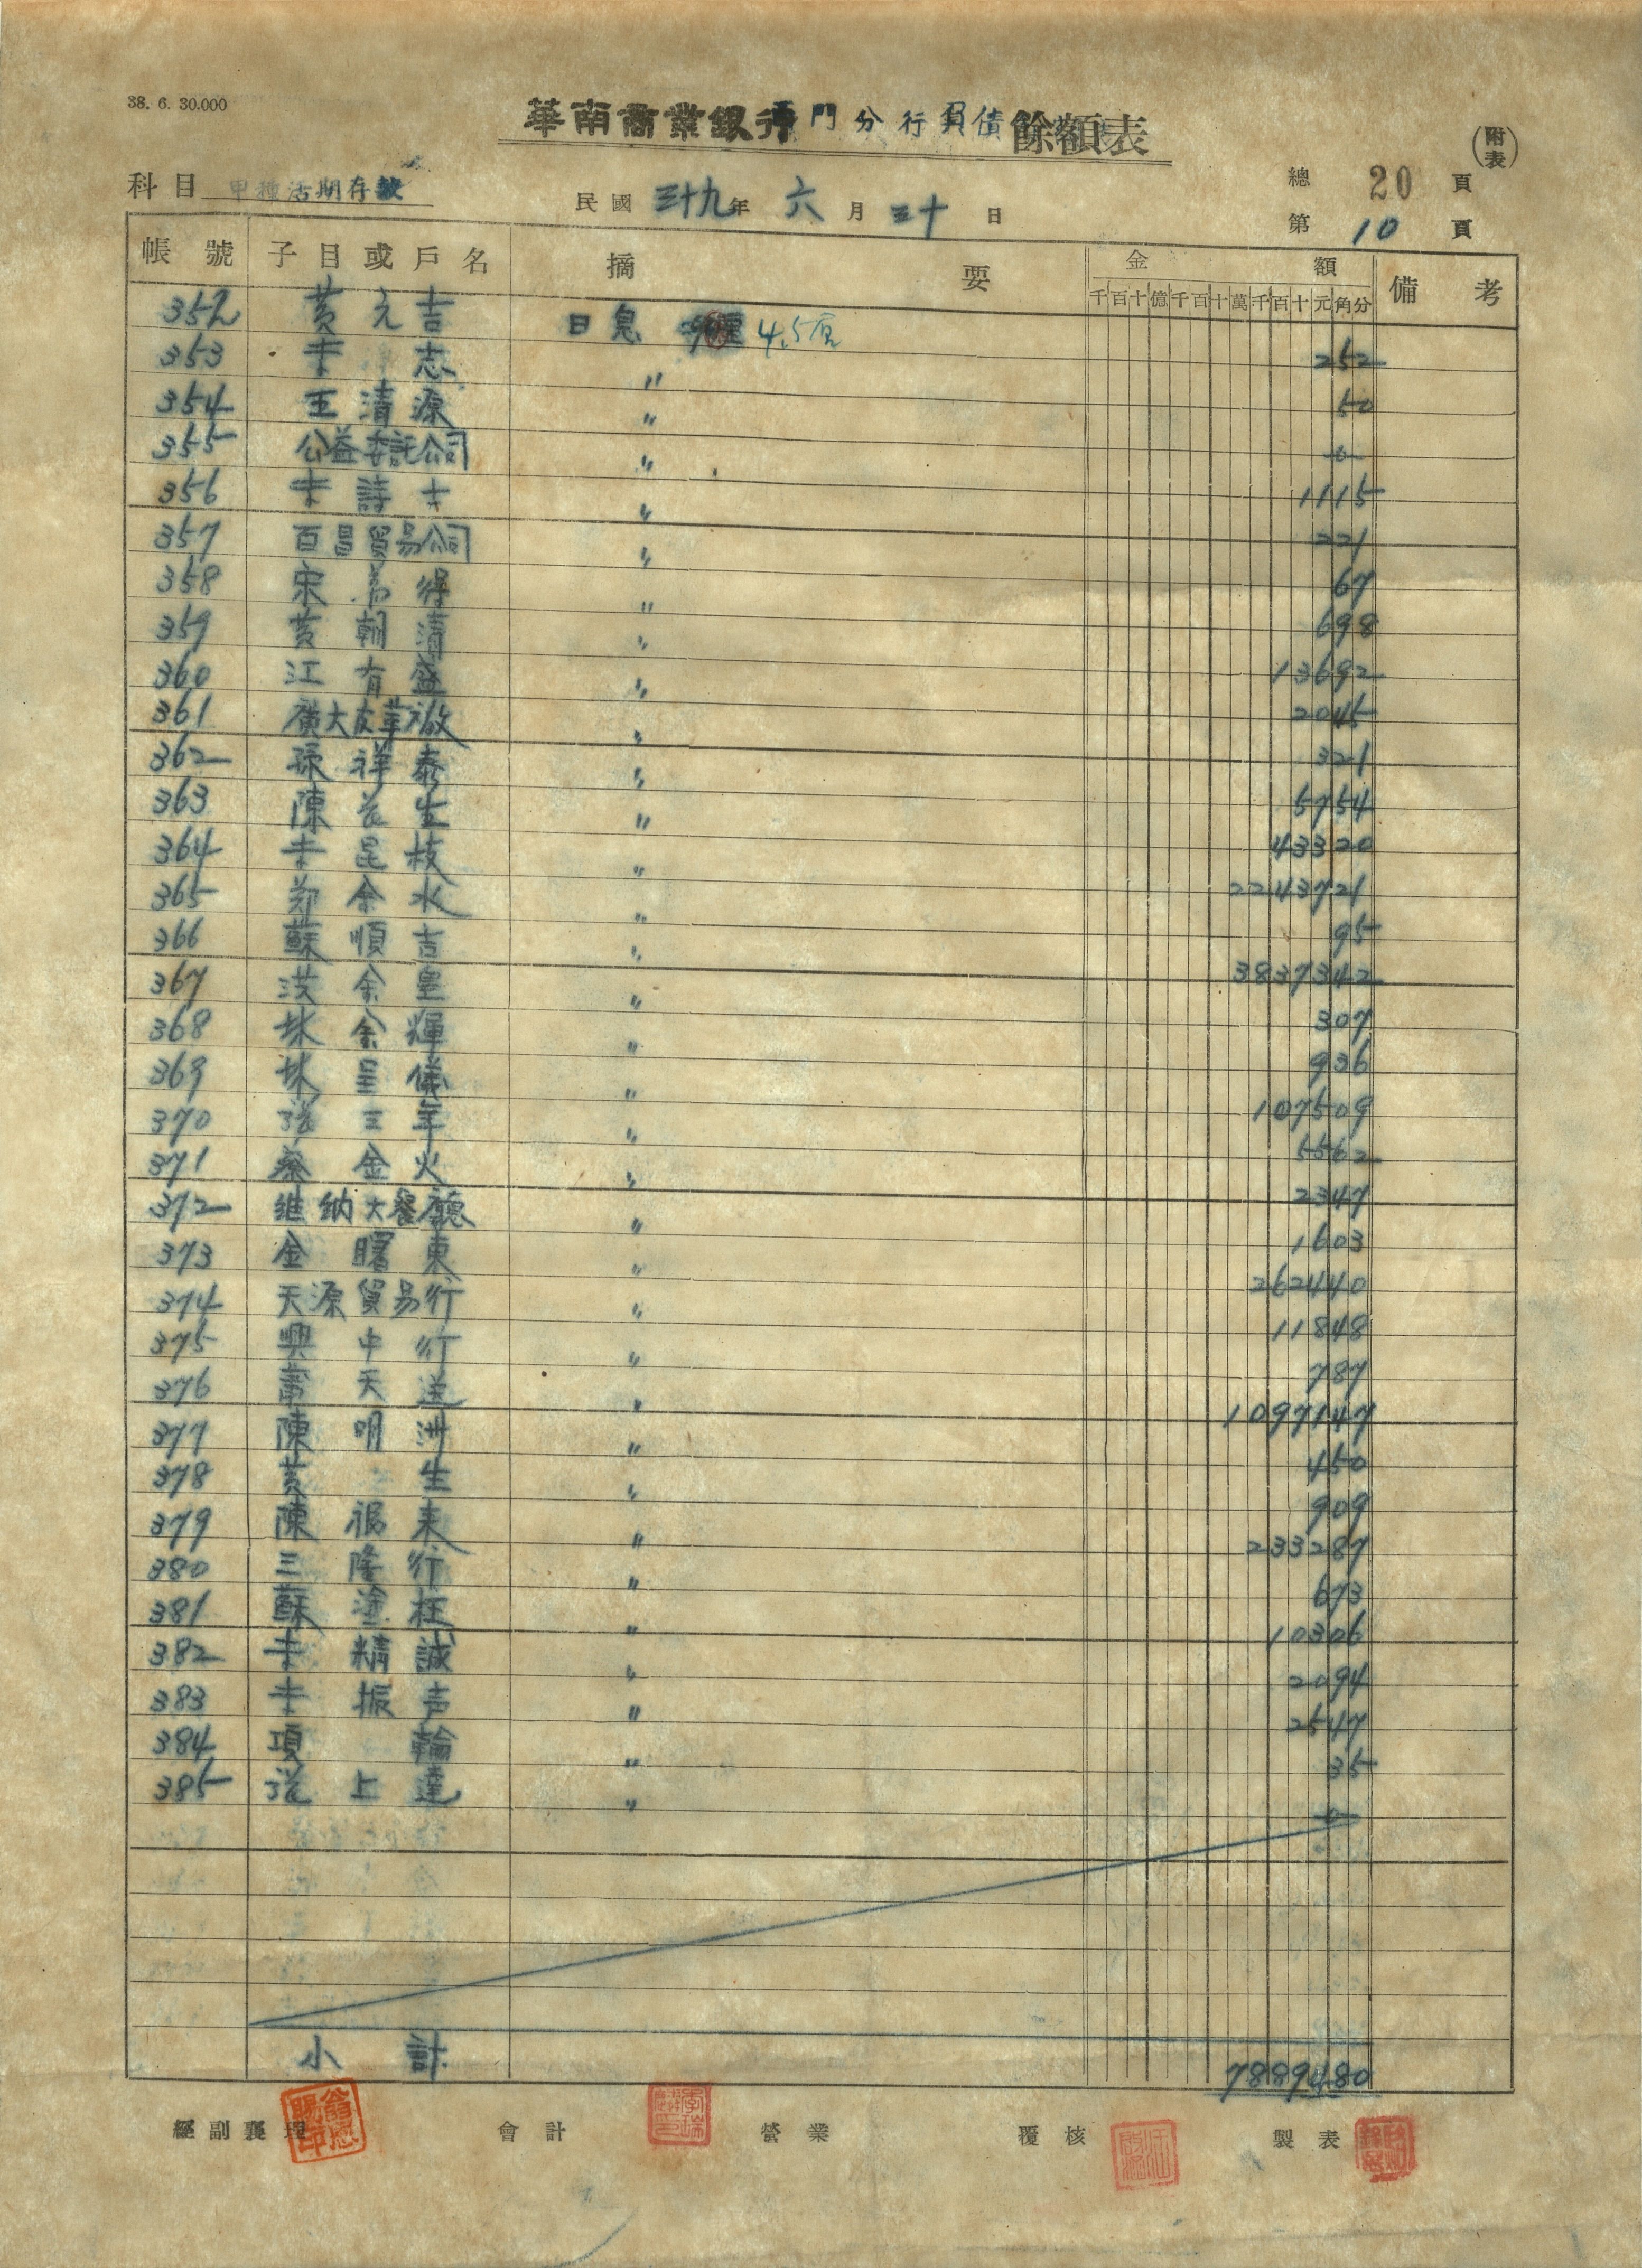 38. 6. 30.000
華南商業銀行 門分行負債餘額表
(附表)
科目 甲種活期存款
民國三十九年六月三十日
總 20 頁
第 10 頁
帳號 子目或戶名 摘要 金額 備考
千百十億千百十萬千百十元角分
352 黃元吉 日息 4.5厘 252
353 志 〃 50
354 王清源 〃 0
355 公益委託公司 〃 1115
356 詩 〃 221
357 百昌貿易公司 〃 67
358 宋 得 〃 698
359 黃朝清 〃 13692
360 江有盛 〃 2045
361 廣大皮革廠 〃 321
362 孫祥泰 〃 5754
363 陳 生 〃 43320
364 昆枝 〃 2243721
365 鄭金水 〃 95
366 蘇順吉 〃 3837342
367 洪金皇 〃 307
368 林金輝 〃 936
369 林呈儀 〃 107509
370 張三年 〃 5562
371 蔡金火 〃 2347
372 維納大餐廳 〃 1603
373 金曙東 〃 262440
374 天源貿易行 〃 11848
375 興中行 〃 787
376 天送 〃 1097147
377 陳明洲 〃 450
378 黃 生 〃 909
379 陳福來 〃 233287
380 三隆行 〃 673
381 蘇塗枉 〃 10306
382 精誠 〃 2094
383 振声 〃 2547
384 項 輪 〃 35
385 張上達 〃 0
小計 7889480
經副襄理 會計 營業 覆核 製表